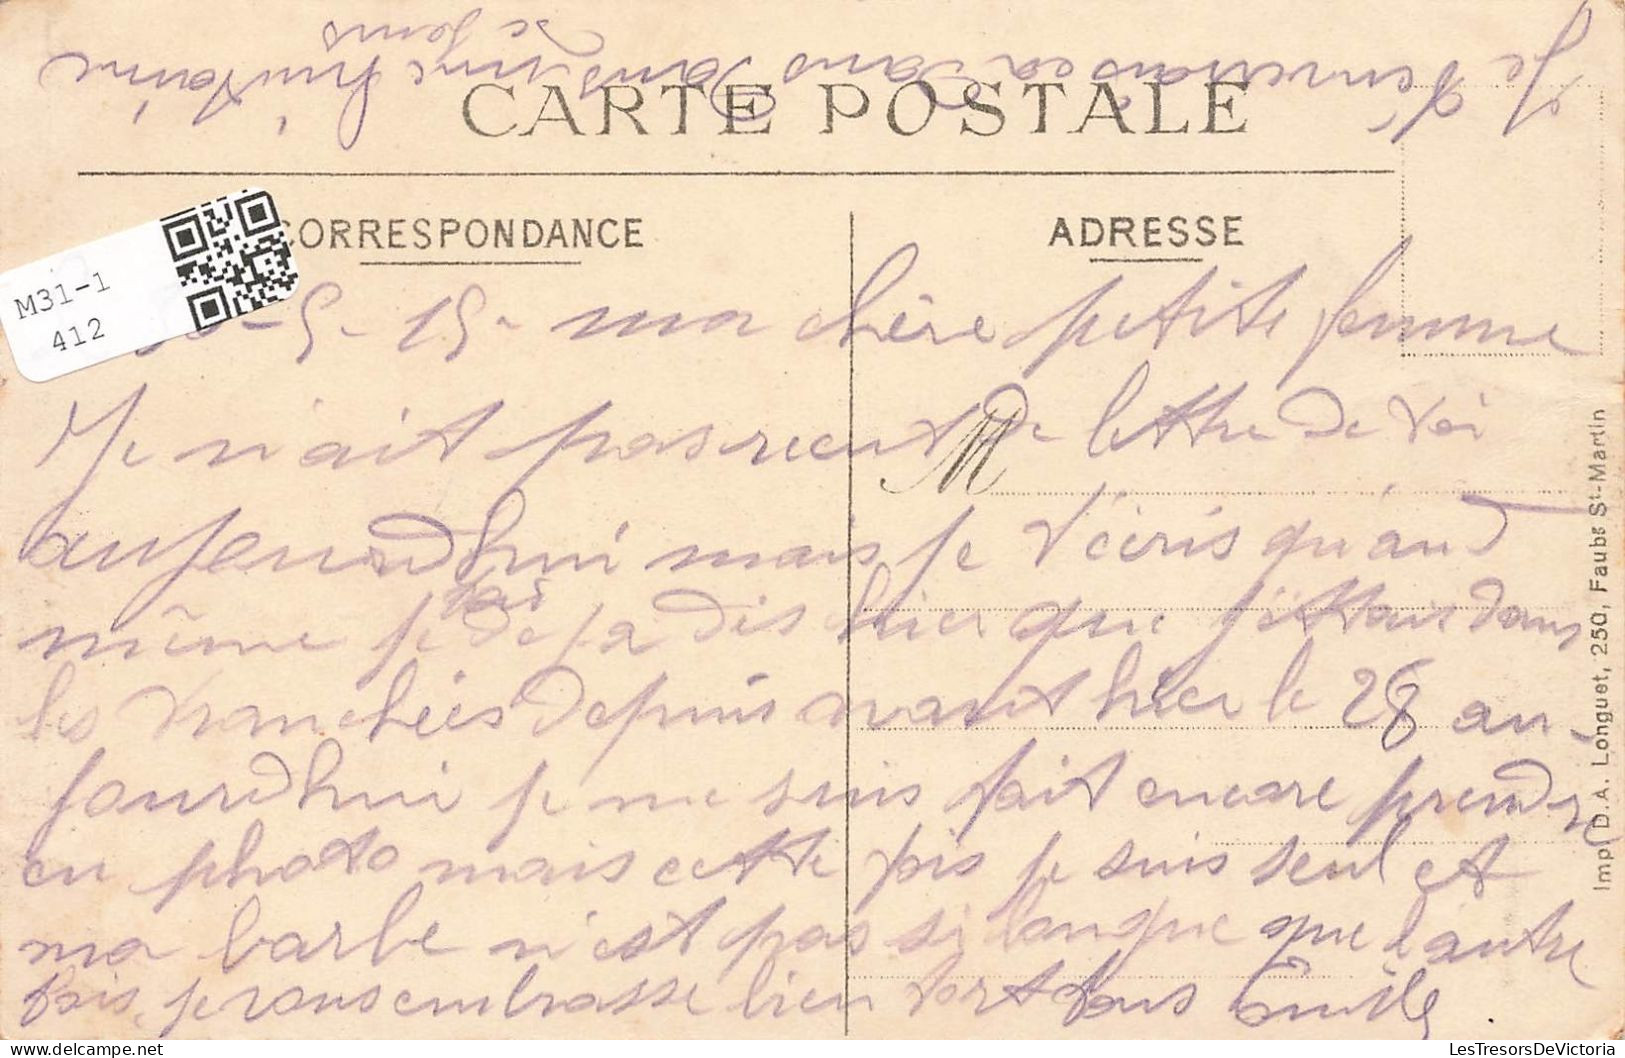 Je t'enverrais ca dans une huitaine
de jours
CARTE POSTALE
CORRESPONDANCE
ADRESSE
M31-1
412
30-5-15- ma chère petite femme
Je n'ait pas recut de lettre de toi
M
aujourdhui mais je t'écris quand
même je tais déja dis hier que j'éttais dans
les tranchées depuis avant hier le 28 au-
jourdhui je me suis fait encore prendre
en photo mais cette fois je suis seul et
ma barbe n'est pas si longue que l'autre
fois, je vous embrasse bien fort tous Emile
Imp. D.A. Longuet, 250, Faubg St-Martin
LesTresorsDeVictoria